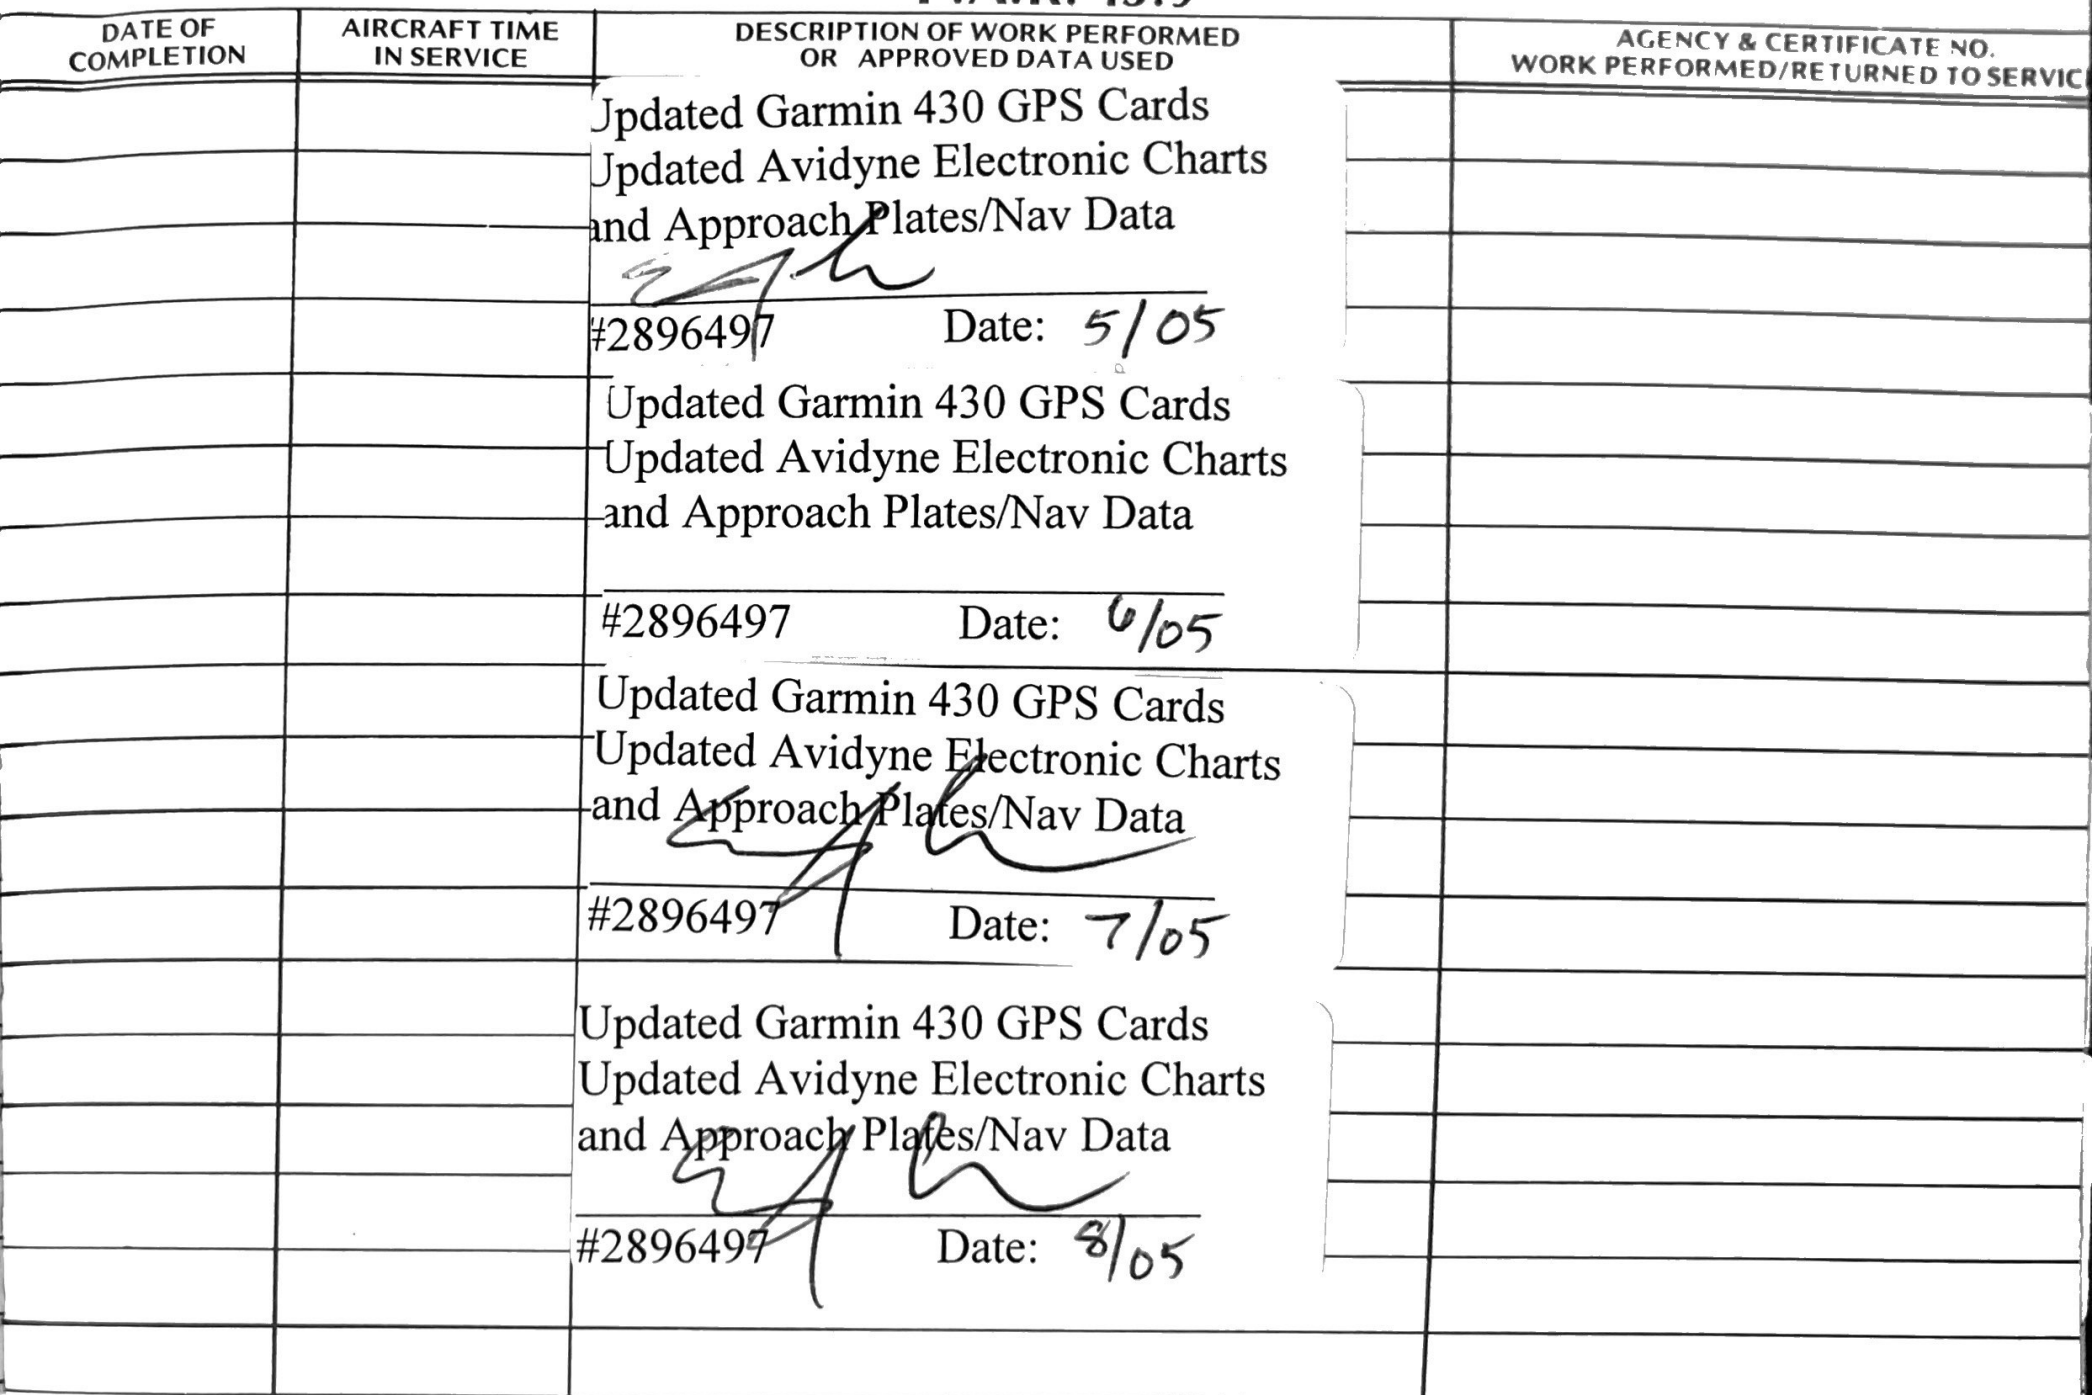 DATE OF
COMPLETION
AIRCRAFT TIME
IN SERVICE
DESCRIPTION OF WORK PERFORMED
OR APPROVED DATA USED
AGENCY & CERTIFICATE NO.
WORK PERFORMED/RETURNED TO SERVIC
Updated Garmin 430 GPS Cards
Updated Avidyne Electronic Charts
and Approach Plates/Nav Data
#2896497 Date: 5/05
Updated Garmin 430 GPS Cards
Updated Avidyne Electronic Charts
and Approach Plates/Nav Data
#2896497 Date: 6/05
Updated Garmin 430 GPS Cards
Updated Avidyne Electronic Charts
and Approach Plates/Nav Data
#2896497 Date: 7/05
Updated Garmin 430 GPS Cards
Updated Avidyne Electronic Charts
and Approach Plates/Nav Data
#2896497 Date: 8/05